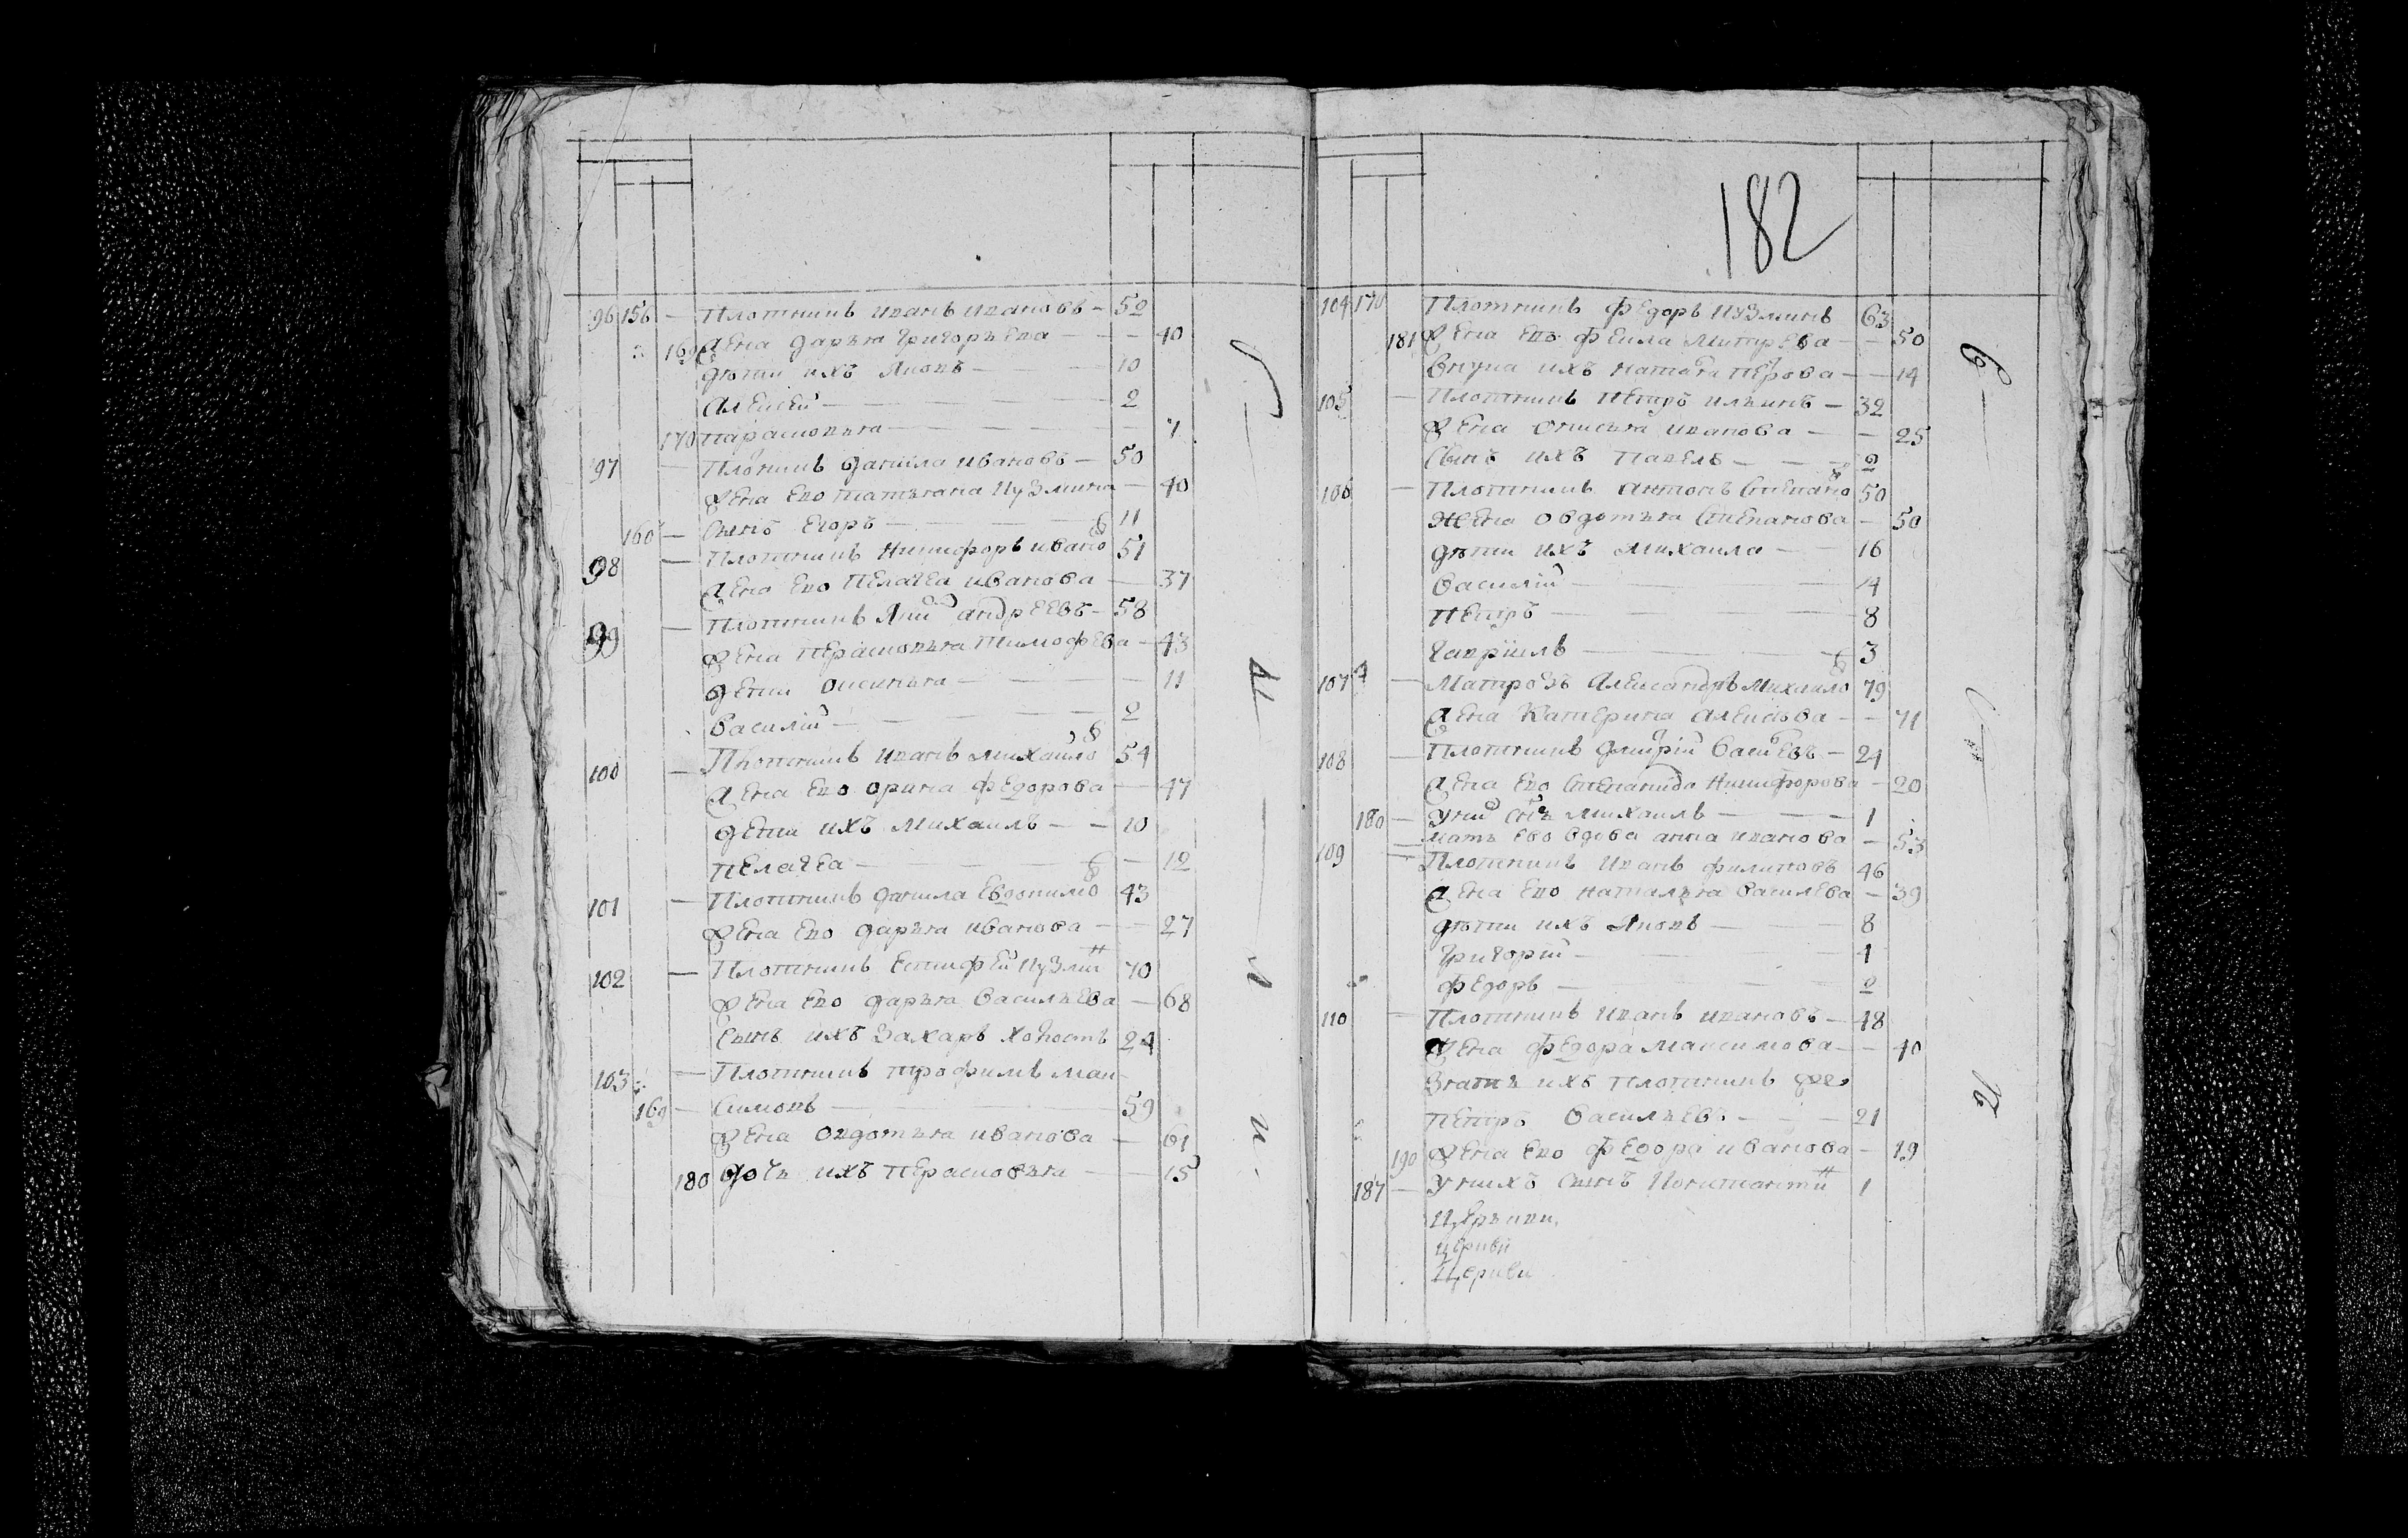 96 156 — Плотникъ иванъ ивановъ — 52
169 Жена дарья григорьева — 40
дѣти ихъ Яковъ — 10
Алексей — 2
170 парасковья — 7
97 — Плотникъ данила ивановъ — 50
Жена ево татьяна кузмина — 40
160 — Сынъ Егоръ — 11
98 — Плотникъ Никифоръ ивановъ 51
Жена ево Пелагея иванова — 37
99 — Плотникъ андреевъ — 58
Жена перасковья тимофева — 43
дети — 11
василий — 2
100 — Плотникъ иванъ михаиловъ 54
Жена ево орина федорова — 47
дети ихъ михаилъ — 10
пелагея — 12
101 — Плотникъ данила Евдокимовъ 43
Жена ево дарья иванова — 27
102 — Плотникъ кузминъ 70
Жена ево дарья васильева — 68
Сынъ ихъ захаръ холостъ 24
103 — Плотникъ трофимъ мак-
169 — Симовъ — 59
Жена овдотья иванова — 61
180 дочь ихъ перасковья — 15
182
104 170 Плотникъ федоръ кузминъ 63
181 Жена ево Митрева — 50
внука ихъ петрова — 14
105 — Плотникъ петръ ильинъ — 32
Жена иванова — 25
Сынъ ихъ павелъ — 2
106 — Плотникъ антонъ Степановъ 50
Жена овдотья Степанова — 50
дѣти ихъ михаила — 16
василий — 14
петръ — 8
гавриилъ — 3
107 — Матрозъ александръ михаиловъ 79
Жена катерина алексѣва — 71
108 — Плотникъ дмитрий василевъ — 24
Жена ево Степанида никифорова — 20
180 — у нихъ сынъ михаилъ — 1
мать ево вдова анна иванова — 53
109 — Плотникъ иванъ филиповъ 46
Жена ево наталья василева — 39
дѣти ихъ Яковъ — 8
григорий — 4
федоръ — 2
110 — Плотникъ иванъ ивановъ — 48
Жена федора максимова — 40
зять ихъ плотникъ
петръ васильевъ — 21
190 Жена ево федора иванова — 19
187 — у нихъ сынъ 1
церькви
церкви
Церкви